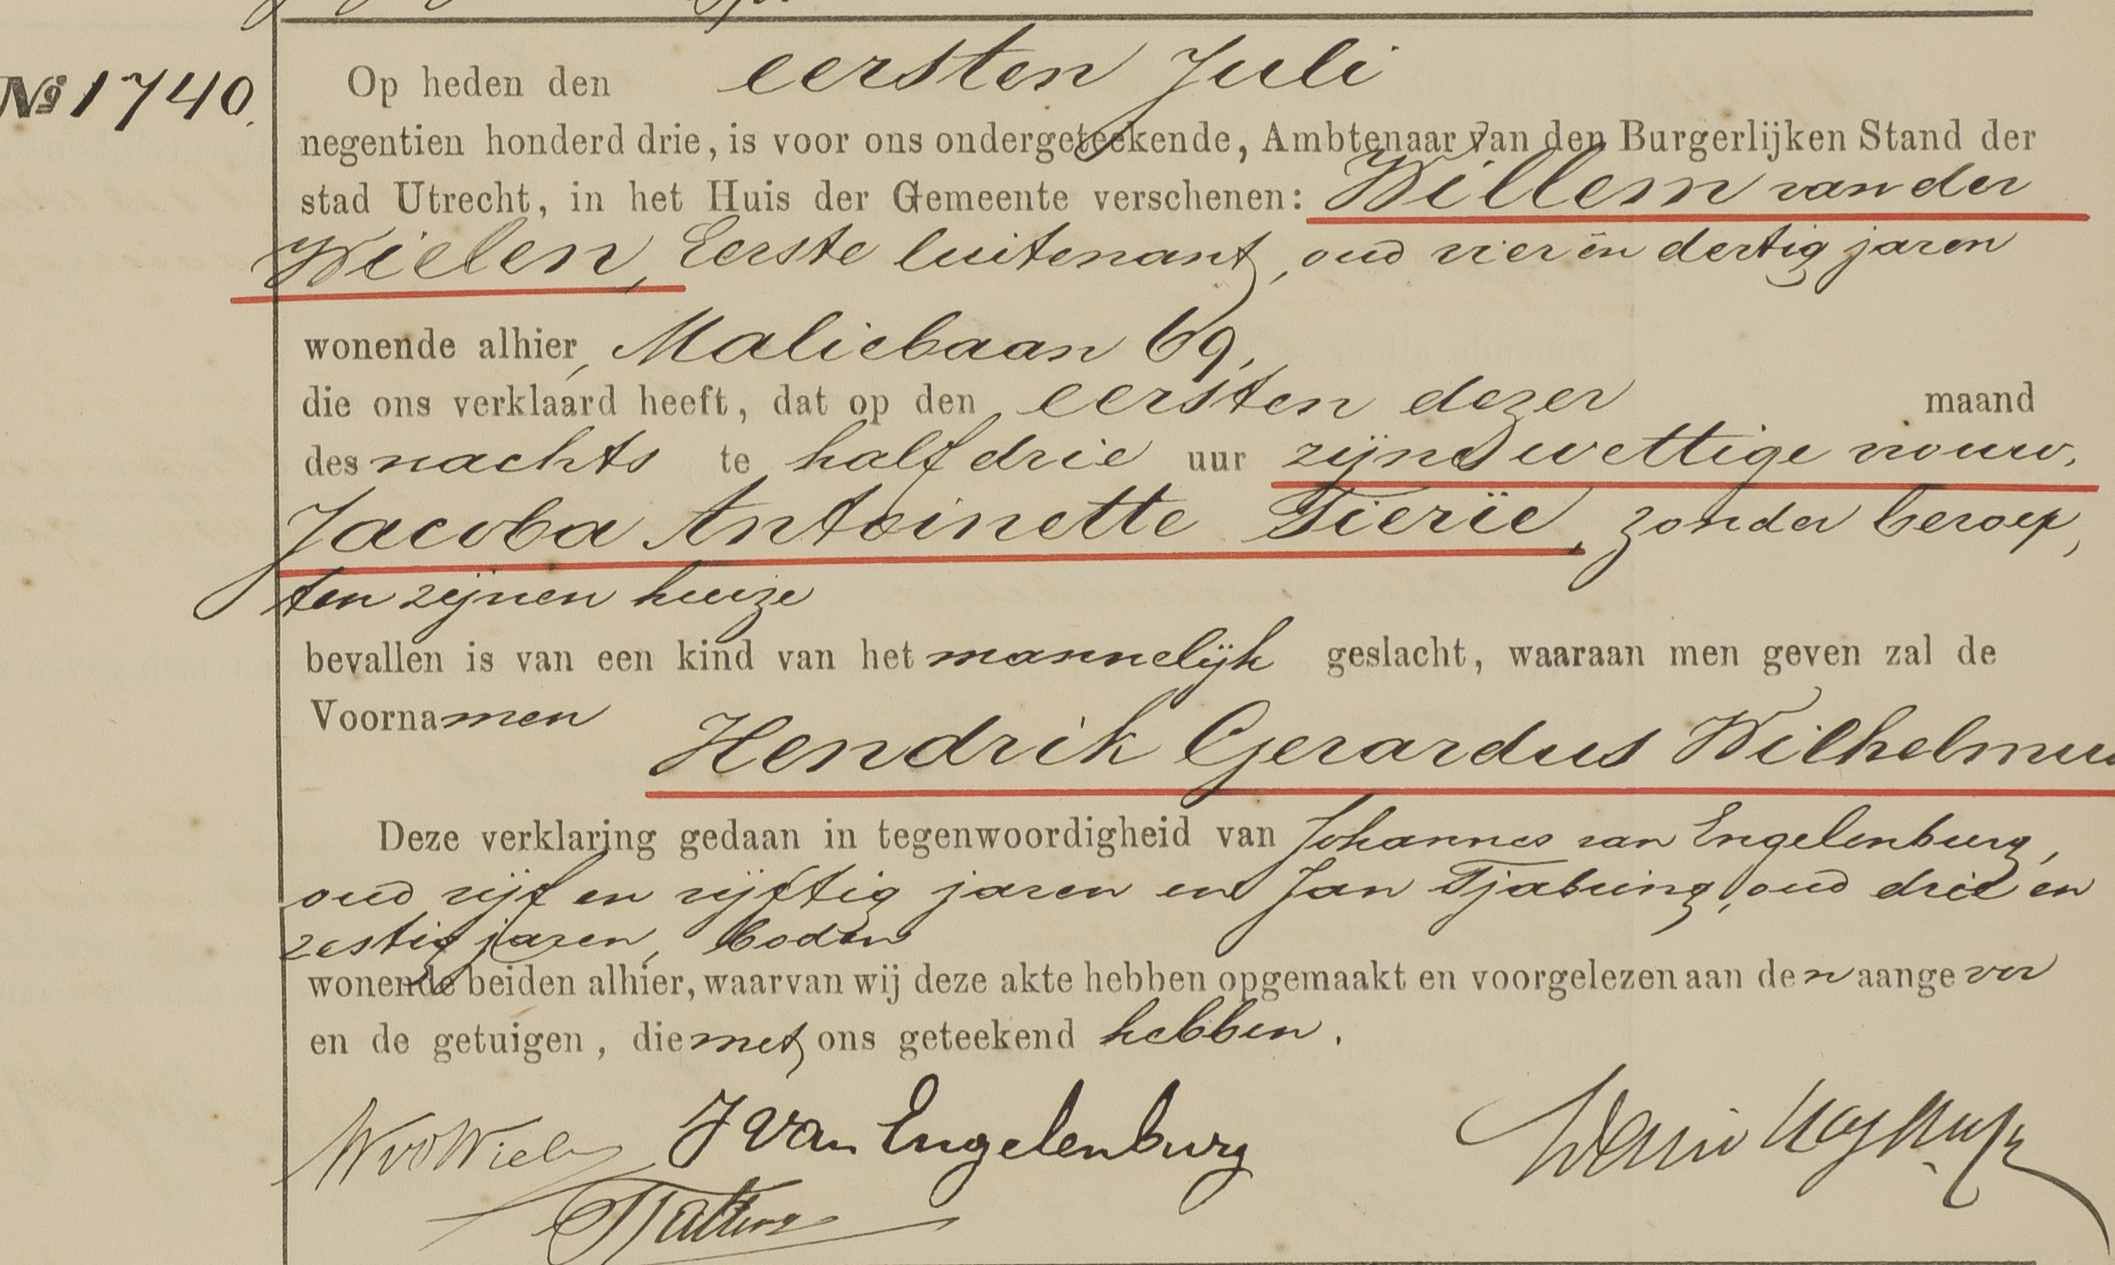 No 1740.
Op heden den eersten Juli
negentien honderd drie, is voor ons ondergeteekende, Ambtenaar van den Burgerlijken Stand der
stad Utrecht, in het Huis der Gemeente verschenen: Willem van der
Wielen, Eerste luitenant, oud vier en dertig jaren
wonende alhier, Maliebaan 69,
die ons verklaard heeft, dat op den eersten dezer maand
des nachts te half drie uur zijne wettige vrouw,
Jacoba Antoinette Tierie, zonder beroep,
ten zijnen huize
bevallen is van een kind van het mannelijk geslacht, waaraan men geven zal de
Voornamen
Hendrik Gerardus Wilhelmus
Deze verklaring gedaan in tegenwoordigheid van Johannes van Engelenburg,
oud vijf en vijftig jaren en Jan Tjabring, oud drie en
zestig jaren, boden
wonende beiden alhier, waarvan wij deze akte hebben opgemaakt en voorgelezen aan den aangever
en de getuigen, die met ons geteekend hebben.
WvdWielen J van Engelenburg